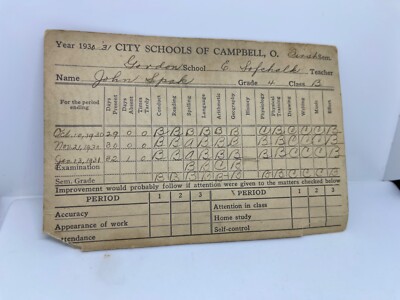 Year 1930-31 CITY SCHOOLS OF CAMPBELL, O.
Gordon School C Sofchalk Teacher
Name John Spak Grade 4 Class B
For the period ending Days Present Days Absent Times Tardy Conduct Reading Spelling Language Arithmetic Geography History Physiology Physical Training Drawing Writing Music Effort
Oct. 10, 1930 29 0 0 B B B B B B C B B C C B
Nov. 21, 1930 30 0 0 B B A B B B C B B C C B
Jan. 12, 1931 32 1 0 B B A B B B
Examination
Sem. Grade
Improvement would probably follow if attention were given to the matters checked below
PERIOD 1 2 3 PERIOD 1 2 3
Accuracy Attention in class
Appearance of work Home study
Attendance Self-control